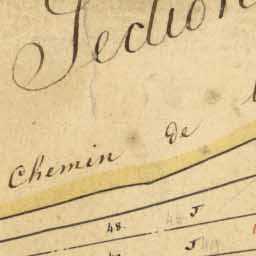 Section
Chemin de
48 J
J